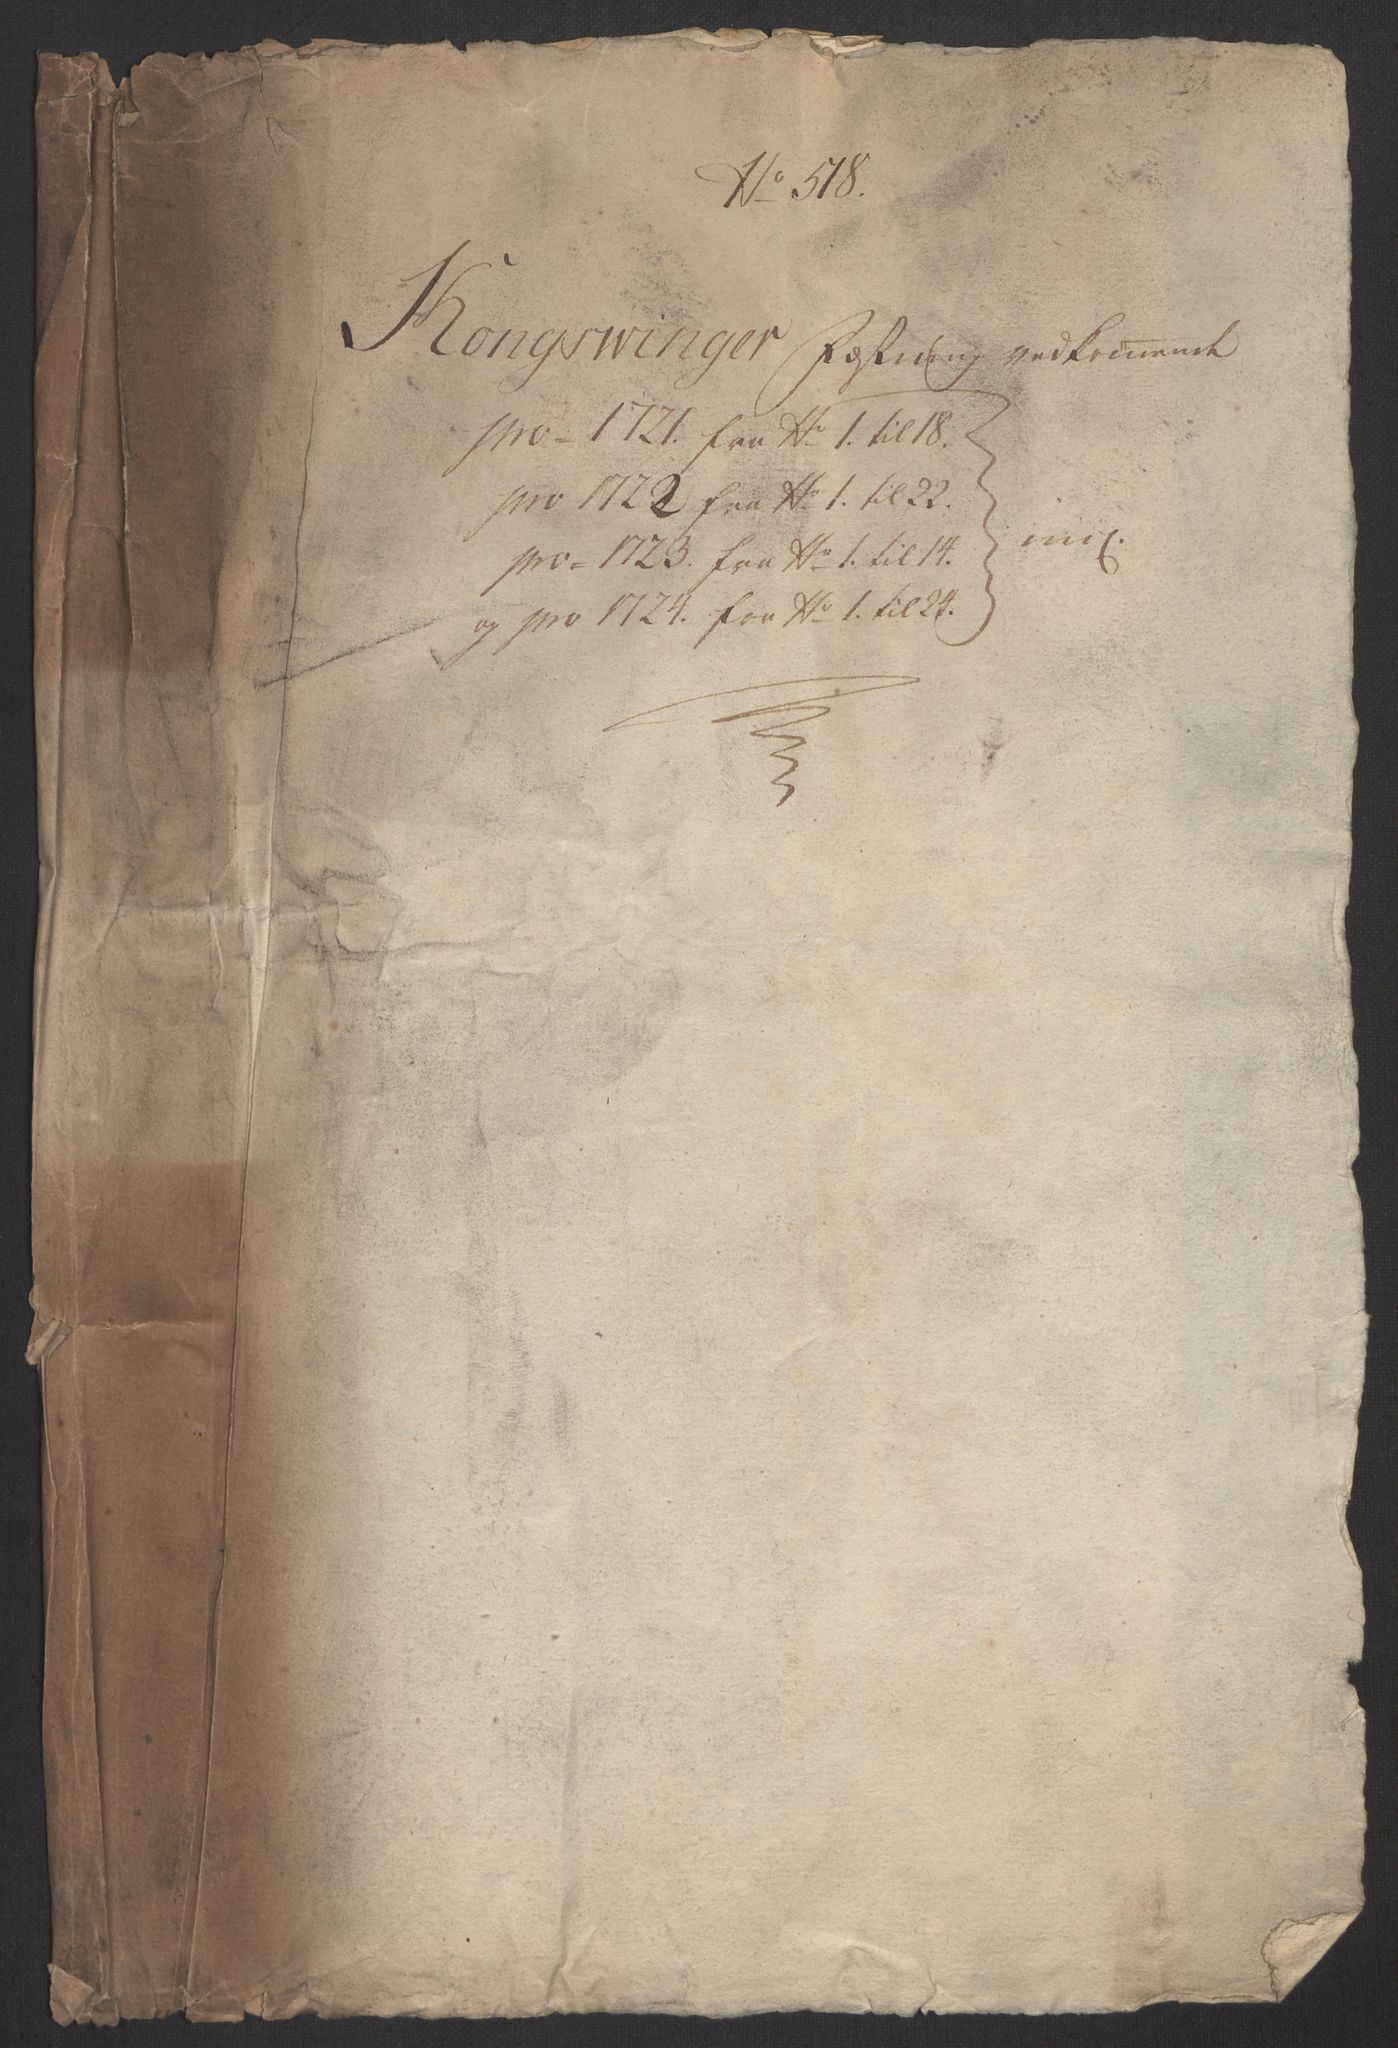 No 518.
Kongswinger Fæstning vedkommende
pro - 1721. fra No 1. til 18.
pro 1722 fra No 1. til 22.
pro - 1723. fra No 1. til 14. incl.
og pro 1724. fra No 1. til 24.